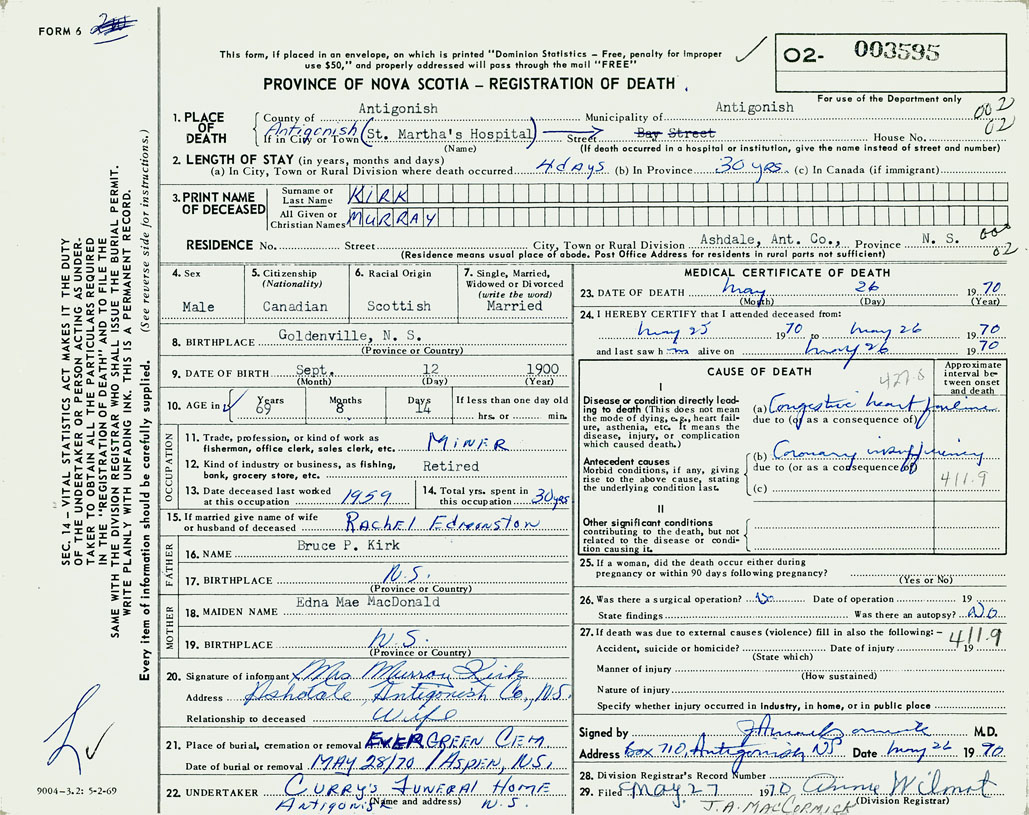 FORM 6
This form, if placed in an envelope, on which is printed "Dominion Statistics – Free, penalty for improper
use $50," and properly addressed will pass through the mail "FREE"
PROVINCE OF NOVA SCOTIA – REGISTRATION OF DEATH
O2- 003595
For use of the Department only
002
02
1. PLACE OF DEATH
County of Antigonish Municipality of Antigonish
Antigonish (St. Martha's Hospital) Bay Street
If in City or Town (Name) Street House No.
(If death occurred in a hospital or institution, give the name instead of street and number)
2. LENGTH OF STAY (in years, months and days)
(a) In City, Town or Rural Division where death occurred 4 days (b) In Province 30 yrs. (c) In Canada (if immigrant)
3. PRINT NAME OF DECEASED
Surname or Last Name KIRK
All Given or Christian Names MURRAY
RESIDENCE No. Street City, Town or Rural Division Ashdale, Ant. Co., Province N. S.
02
(Residence means usual place of abode. Post Office Address for residents in rural parts not sufficient)
4. Sex Male
5. Citizenship (Nationality) Canadian
6. Racial Origin Scottish
7. Single, Married, Widowed or Divorced (write the word) Married
8. BIRTHPLACE Goldenville, N. S.
(Province or Country)
9. DATE OF BIRTH Sept. 12 1900
(Month) (Day) (Year)
10. AGE in Years 69 Months 8 Days 14 If less than one day old hrs. or min.
OCCUPATION
11. Trade, profession, or kind of work as fisherman, office clerk, sales clerk, etc. MINER
12. Kind of industry or business, as fishing, bank, grocery store, etc. Retired
13. Date deceased last worked at this occupation 1959
14. Total yrs. spent in this occupation 30 yrs
15. If married give name of wife or husband of deceased RACHEL EDMONSTON
FATHER
16. NAME Bruce P. Kirk
17. BIRTHPLACE N.S.
(Province or Country)
MOTHER
18. MAIDEN NAME Edna Mae MacDonald
19. BIRTHPLACE N.S.
(Province or Country)
20. Signature of informant x Mrs Murray Kirk
Address Ashdale, Antigonish Co., N.S.
Relationship to deceased Wife
21. Place of burial, cremation or removal EVERGREEN CEM
Date of burial or removal MAY 28/70 / ASPEN, N.S.
22. UNDERTAKER CURRY'S FUNERAL HOME
ANTIGONISH N.S.
(Name and address)
MEDICAL CERTIFICATE OF DEATH
23. DATE OF DEATH May 26 1970
(Month) (Day) (Year)
24. I HEREBY CERTIFY that I attended deceased from:
May 25 1970 to May 26 1970
and last saw him alive on May 26 1970
CAUSE OF DEATH
Approximate interval between onset and death
427.8
I
Disease or condition directly leading to death (This does not mean the mode of dying, e.g., heart failure, asthenia, etc. It means the disease, injury, or complication which caused death.)
(a) Congestive heart failure
due to (or as a consequence of)
Antecedent causes
Morbid conditions, if any, giving rise to the above cause, stating the underlying condition last.
(b) Coronary insufficiency
due to (or as a consequence of)
411.9
(c)
II
Other significant conditions contributing to the death, but not related to the disease or condition causing it.
25. If a woman, did the death occur either during pregnancy or within 90 days following pregnancy?
(Yes or No)
26. Was there a surgical operation? No Date of operation 19
State findings Was there an autopsy? No
27. If death was due to external causes (violence) fill in also the following: – 411.9
Accident, suicide or homicide? Date of injury 19
(State which)
Manner of injury
(How sustained)
Nature of injury
Specify whether injury occurred in industry, in home, or in public place
Signed by M.D.
Address Box 710, Antigonish, NS Date May 26 1970
28. Division Registrar's Record Number
29. Filed May 27 1970 Annie Wilmot
(Division Registrar)
J. A. MACCORMICK
SEC. 14 – VITAL STATISTICS ACT MAKES IT THE DUTY
OF THE UNDERTAKER OR PERSON ACTING AS UNDER-
TAKER TO OBTAIN ALL THE PARTICULARS REQUIRED
IN THE "REGISTRATION OF DEATH" AND TO FILE THE
SAME WITH THE DIVISION REGISTRAR WHO SHALL ISSUE THE BURIAL PERMIT.
WRITE PLAINLY WITH UNFADING INK. THIS IS A PERMANENT RECORD.
Every item of information should be carefully supplied. (See reverse side for instructions.)
9004-3.2: 5-2-69